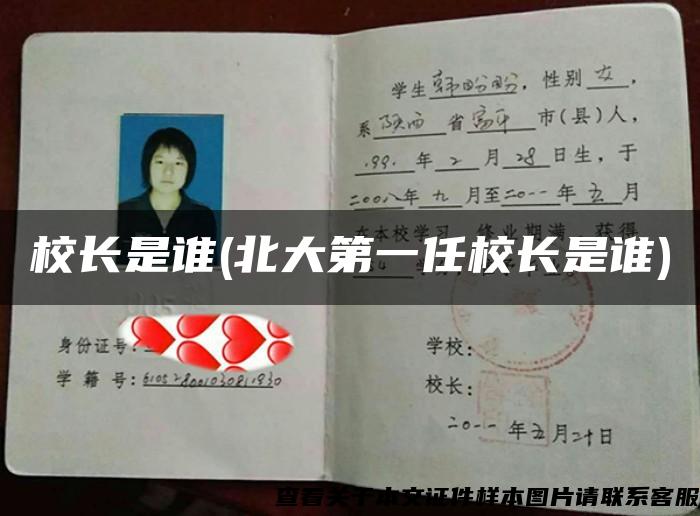 学生韩盼盼,性别女,
系陕西省富平市(县)人,
1991年2月28日生,于
二00八年九月至二0一一年五月
在本校学习 修业期满,获得
校长是谁(北大第一任校长是谁)
身份证号:
学籍号:610528001030811930
学校:
校长:
二0一一年五月二十日
查看关于本文证件样本图片请联系客服